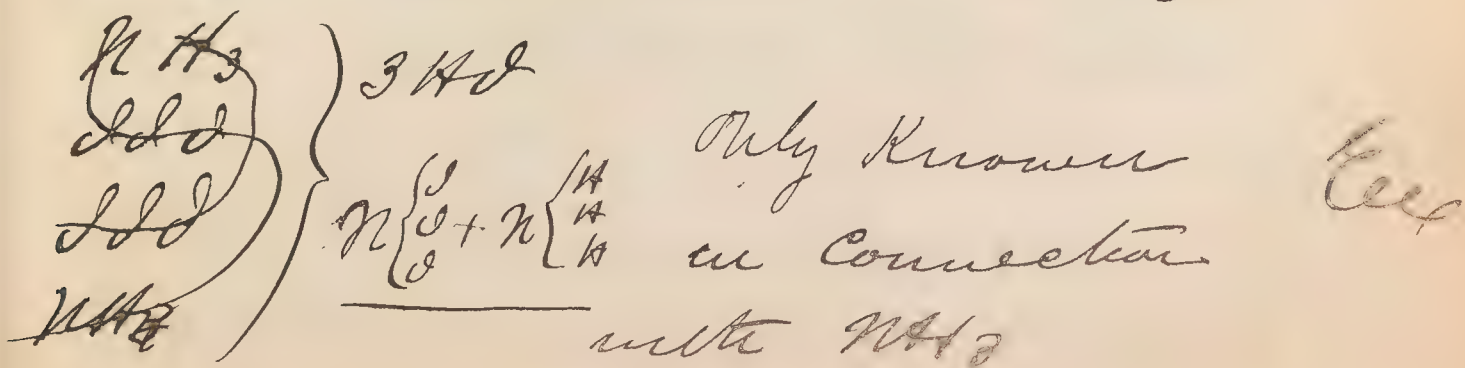 NH3
III
III
NH3
3HI
N { I I I + N { H H H
Only Known
in Connection
with NH3